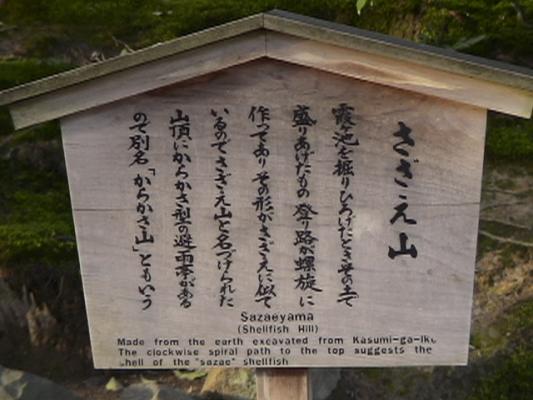 さざえ山
霞ヶ池を掘りひろげたときその土で
盛りあげたもの 登り路が螺旋に
作ってあり その形がさざえに似て
いるので さざえ山と名づけられた
山頂にからかさ型の避雨亭がある
ので別名「からかさ山」ともいう
Sazaeyama
(Shellfish Hill)
Made from the earth excavated from Kasumi-ga-ike
The clockwise spiral path to the top suggests the
shell of the "sazae" shellfish